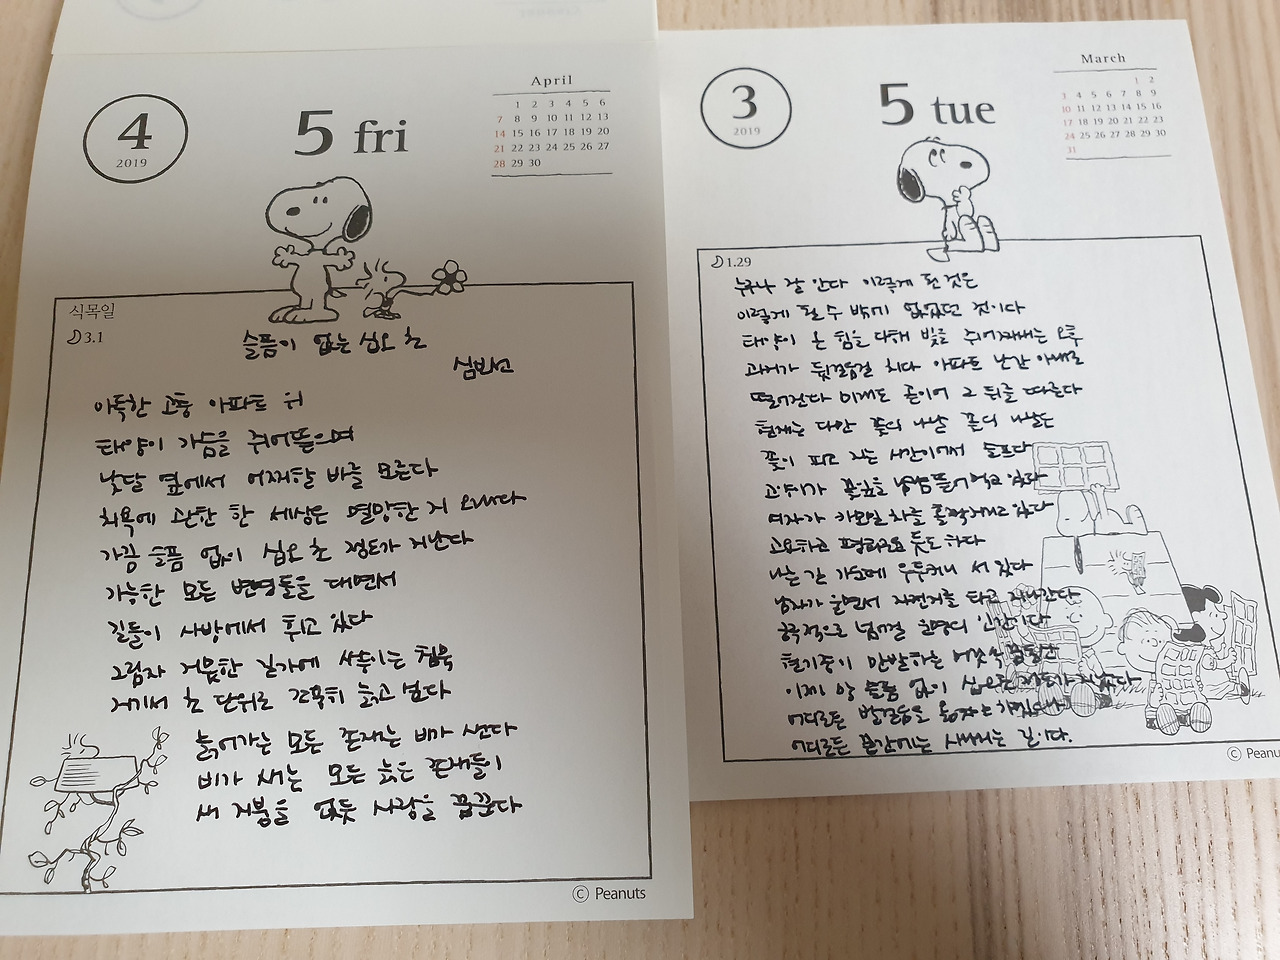 4
2019
5 fri
April
1 2 3 4 5 6
7 8 9 10 11 12 13
14 15 16 17 18 19 20
21 22 23 24 25 26 27
28 29 30
식목일
3.1
슬픔이 없는 십오 초
심보선
아득한 고층 아파트 위
태양이 가슴을 쥐어뜯으며
낮달 옆에서 어찌할 바를 모른다
치욕에 관한 한 세상은 멸망한 지 오래다
가끔 슬픔 없이 십오 초 정도가 지난다
가능한 모든 변명들을 대면서
길들이 사방에서 휘고 있다
그림자 거뭇한 길가에 쌓이는 침묵
거기서 초 단위로 늙고 싶다
늙어가는 모든 존재는 비가 샌다
비가 새는 모든 늙은 존재들이
새 지붕을 얹듯 사랑을 꿈꾼다
© Peanuts
3
2019
5 tue
March
1 2
3 4 5 6 7 8 9
10 11 12 13 14 15 16
17 18 19 20 21 22 23
24 25 26 27 28 29 30
31
1.29
누구나 잘 안다 이렇게 된 것은
이렇게 될 수 밖에 없었던 것이다
태양이 온 힘을 다해 빛을 쥐어짜내는 오후
과거가 뒷걸음질 치다 아파트 난간 아래로
떨어진다 미래도 곧이어 그 뒤를 따른다
현재는 다만 꽃의 나날 꽃의 나날은
꽃이 피고 지는 시간이어서 슬프다
고양이가 꽃잎을 냠냠 뜯어 먹고 있다
여자가 카모밀 차를 홀짝거리고 있다
고요하고 평화로운 듯도 하다
나는 길 가운데 우두커니 서 있다
남자가 울면서 자전거를 타고 지나간다
궁극적으로 넘어질 운명의 인간이다
현기증이 만발하는 머릿속 꿈동산
이제 막 슬픔 없이 십오 초 정도가 지났다
어디로든 발걸음을 옮겨야
어디로든 끝간에는 사라지는 길이다.